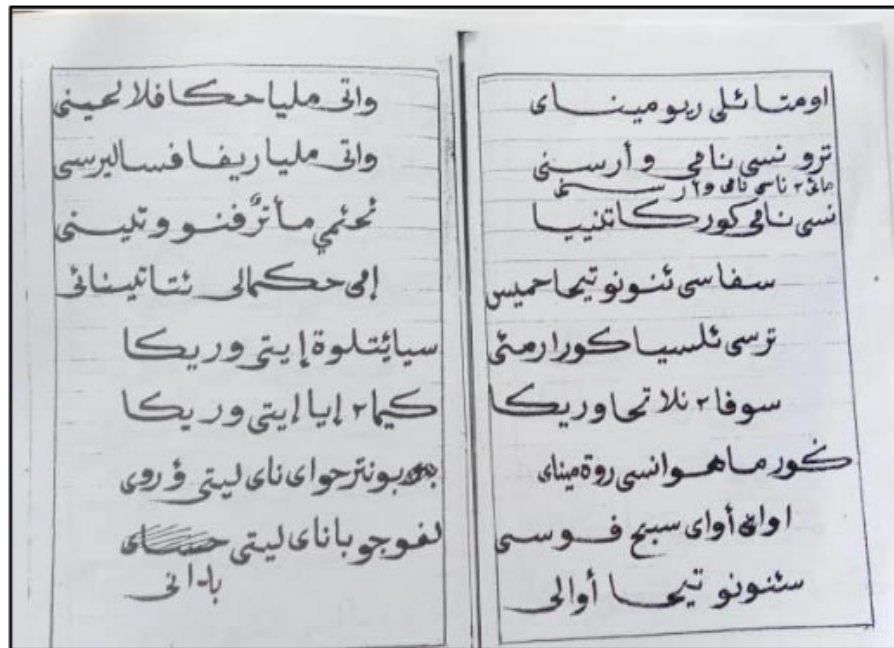 اومتائلى ريو ميناى
ترو نسى نامي وأرسنى
مائ٢ ناسى نامى وأرسنى
نسى نامي كوركاتنييا
سفاسى ئنونو تيحا حميس
ترسى ئلسيا كورارمئى
سوفا٢ نلاتحا وريكا
كور ماهوانسى روة ميناى
أواى سبح فوسى
سئنونو تيحا أوالى
واتى مليا حكافلالحينى
واتى مليا ريفا فساليرسى
نحئمي مأترفنو وتلينى
إمى حكمالى ئتاتيسنائى
سيايئتلوة إيتى وريكا
كيما٢ إيا إيتى وريكا
بونترحواى ناى ليتى ؤروى
لفوجوباناى ليتى
بادانى